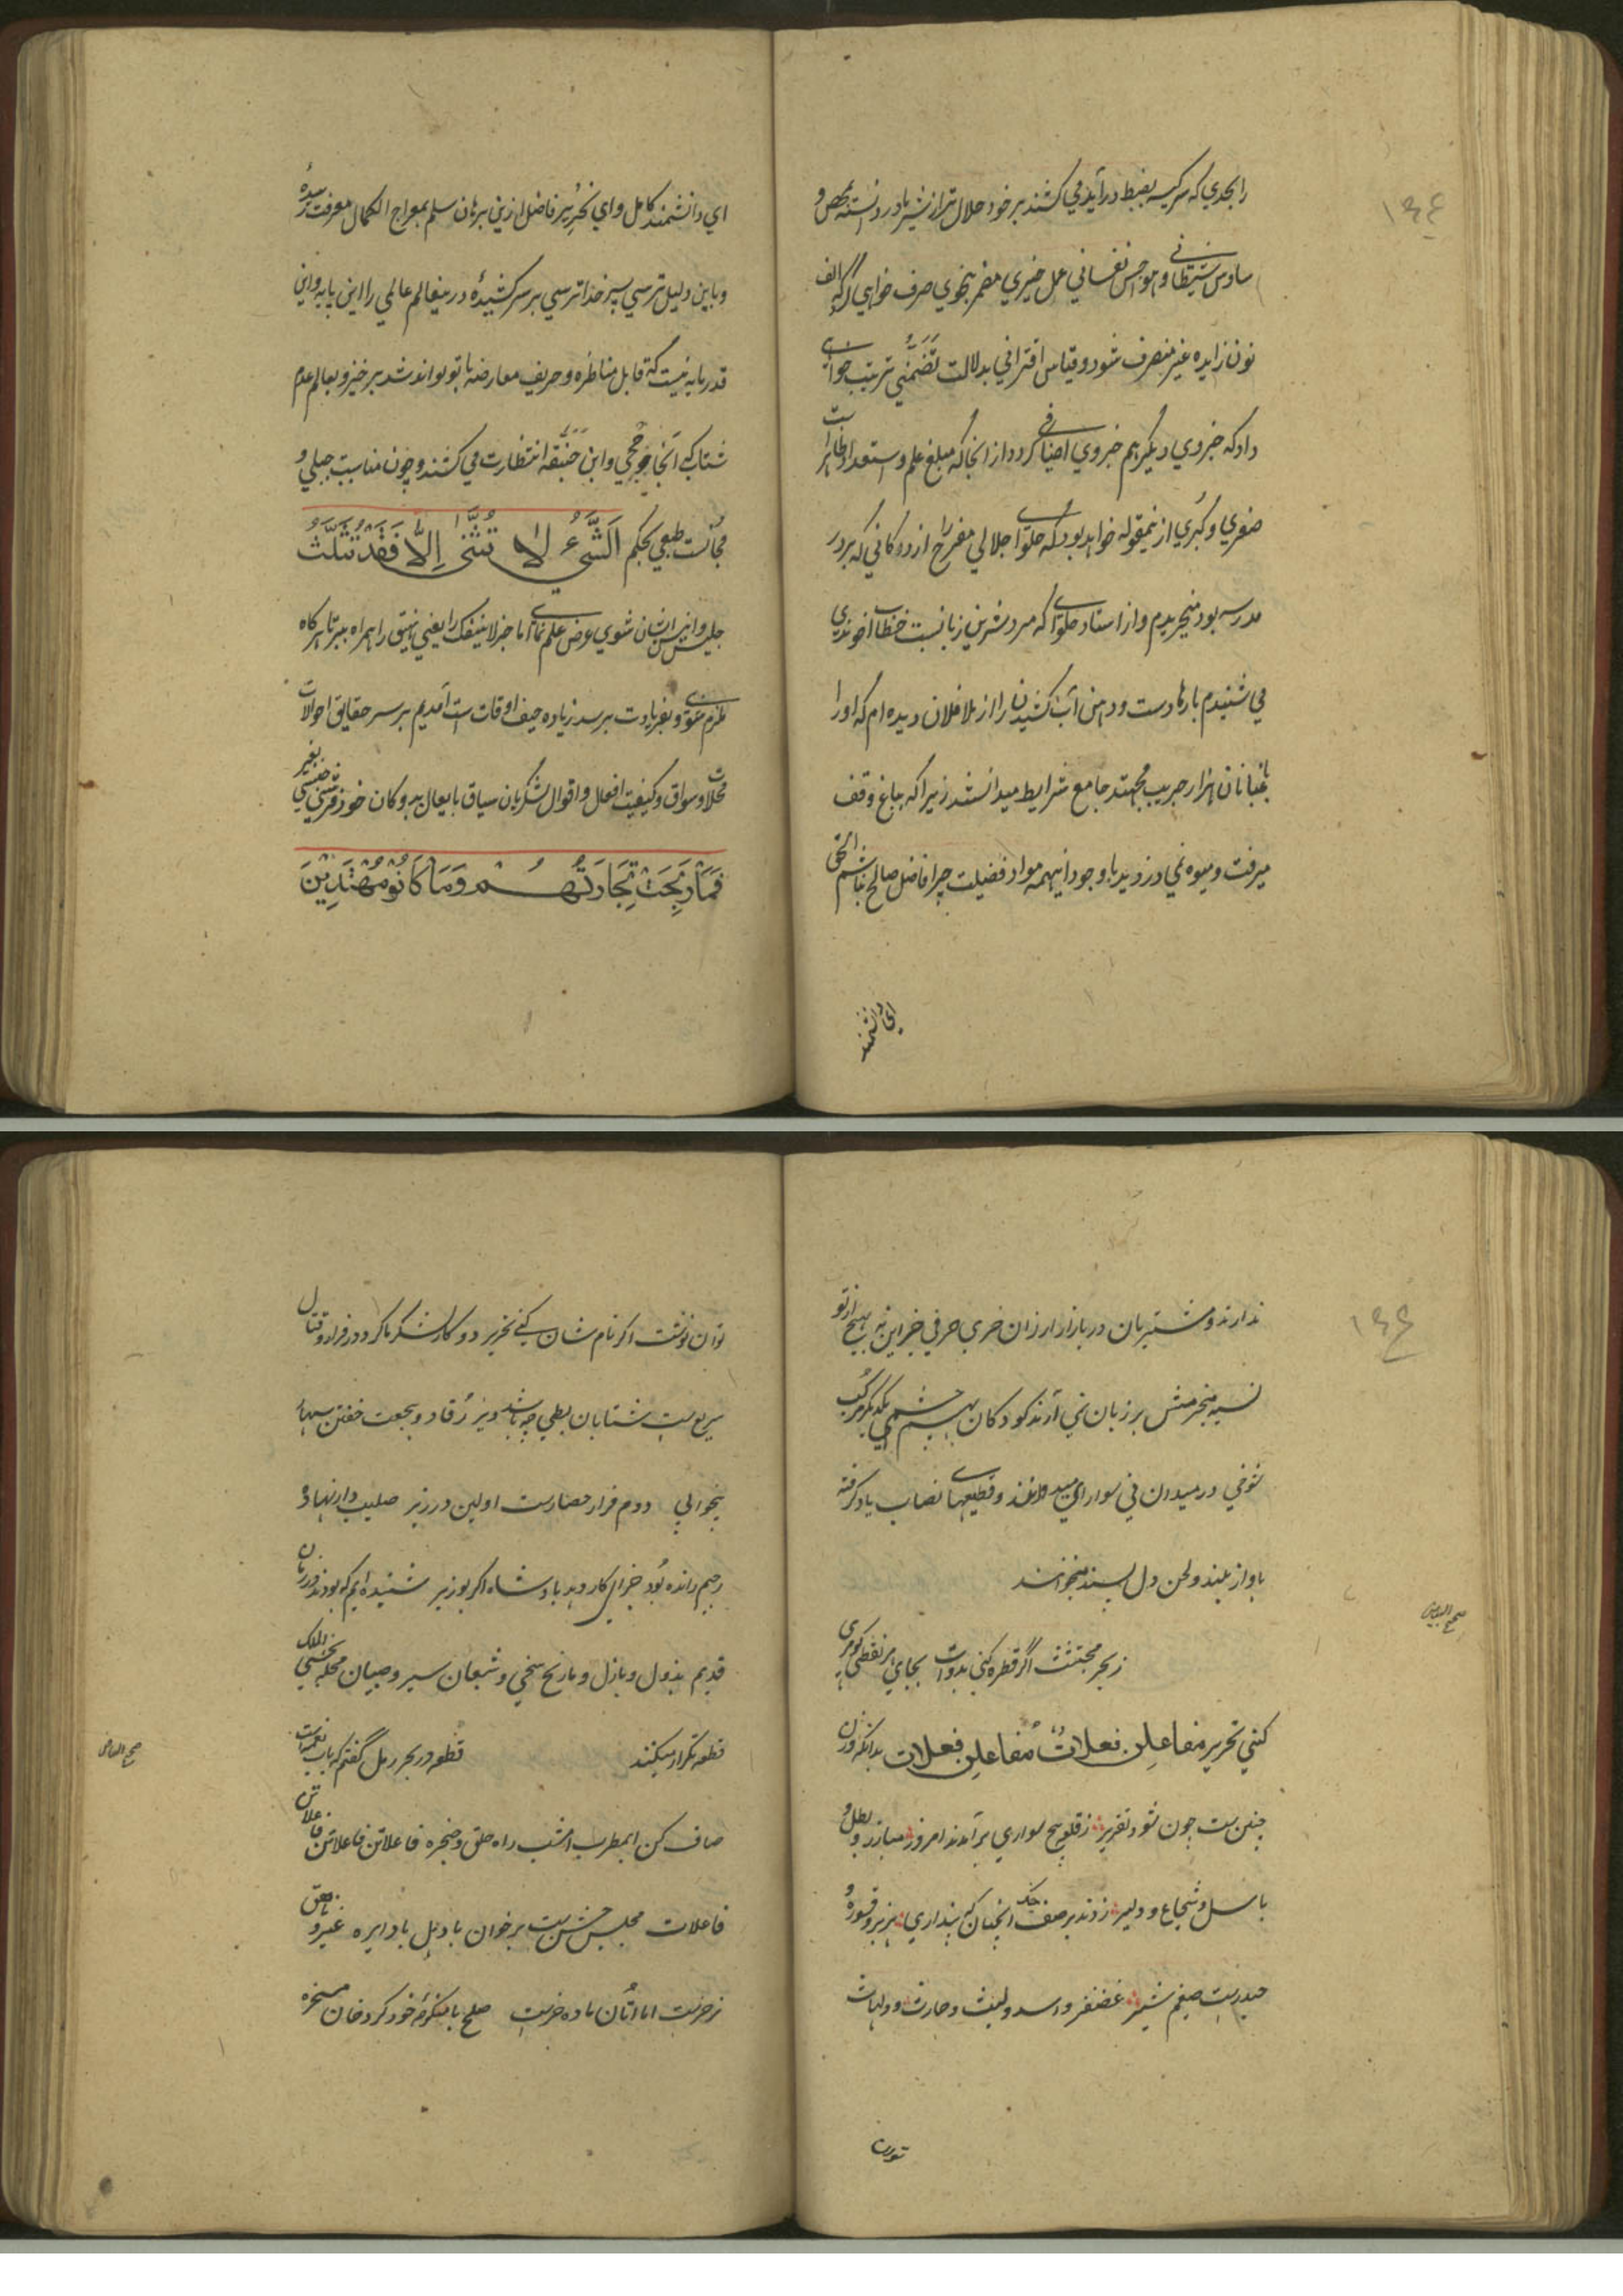 را بجدي که سرکیسه بغبط درآید می کشند بر خود حلال تر از شیر مادر دانسته محض و
ساوس شیطانی و هواجس نفسانی عمل خیری مضمر بنحوی صرف خواهی که الف
نون زایده غیر منصرف شود و قیاس اقترانی بدلالت تَضَمُّنی ترتیب خواهی
داد که جزوی دیگر هم جزوی اضافی گردد از انجا که مبلغ علم و استعداد ظاهر است
صغری و کبری از نیمقوله خواهد بود که حلوای جلالی مفرح را از دوکانی که بر در
مدرسه بود میخریدم و از استاد حلوای که مرد شیرین زبانست خطاب اخوندی
می شنیدم بارها دست و دامن آب کشیدن را از ملا فلان دیده ام که او را
باغبانان هزار جریب مجتهد جامع شرایط میدانستند زیرا که بباغ وقف
میرفت و میوه نمی دزدید با وجود اینهمه مواد فضیلت چرا فاضل صالح نباشم الحق
ای دانشمند
ای دانشمند کامل و ای نحریر فاضل از ین برهان سلم بمعراج الکمال معرفت رسیدهٔ
و باین دلیل ترسی سپر خدا ترسی بر سر کشیدهٔ در ینعالم عالمی را این پایه و این
قدر مایه نیست که قابل مناظره و حریف معارضه با تو تواند شد برخیز و بعالم عدم
شتاب که آنجا جوحی و ابن حَنبقه انتظارت می کشند و چون مناسبت جبلی و
مجانست طبعی بحکم اَلشَّیءُ لا تُثَنّی اِلاّ فَقَد تُثَلَّثُ
جلیس و انیس ایشان شوی عرض علم نمای اما جزلا ینفک را یعنی انیق را همراه ببر تا هرگاه
ملزم شوی و بفریادت برسد زیاده حیف اوقات است آمدیم بر سر حقایق احوالات
محلات و سواق و کیفیت افعال و اقوال لشکریان سیاق بابعال بدوکان خود فروشی جنسی بغیر
فَمَا رَبِحَتْ تِجَارَتُهُمْ وَمَا كَانُوْ مُهْتَدِیْنَ
ندارند و مشتریان در بازار ارزان خری حرفی جز این نه بهیچ از تو
نسیه منجر مش بر زبان نمی آرند کودکان بهم چشمی یکدیگر مرکب
شوخی در میدان نی سواری میدوانند و قطعهای نصاب یاد گرفته
باواز بلند و لحن دل پسند میخوانند
ز بحر مجتثث اگر قطره کنی بدوات بجای هر نقطی گوهری
کنی تحریر مفاعلن فعلاتُ مفاعلن فعلات بدانکه وزن
چنین ست چون شود تقریر ز قلوبیج سواری برآمدند امروز مبارز و بطل و
باسل و شجاع و دلیر زدند بر صف جنک انچنان که پنداری هزبر و قسوره و
حیدرست ضیغم شیر غضنفر و اسد و لیث و حارث و دلهاث
توان
توان نوشت اکر نام شان کنی تحریر دو کار لشکر ما کرد در فرار و قتال
سریع ست شتابان بطی چه باشد دیر رُقاد و هجعت خفتن سهاد
بیخوابی دوم فرار حصارست اولین در زیر صلیب دار نهادهٔ
رجیم رانده بُود جزای کار دهد پادشاه اکر بوزیر شنیده ایم که بودند در زمان
قدیم بذول و باذل و مانح سخی و شبعان سیر و صبیان محله بخشی الملک
قطعه تکرار میکنند قطعه در بحر رمل گفتم که باب نغمه است
صاف کن ایمطرب امشب راه حلق و حنجره فاعلاتن فاعلاتن فاعلاتن
فاعلات مجلس جشن ست برخوان با دهل با دایره عیر و ناهق
نر خرست اما اَتان ماده خرست صلح با لشکرم خود کرد خان مسخره